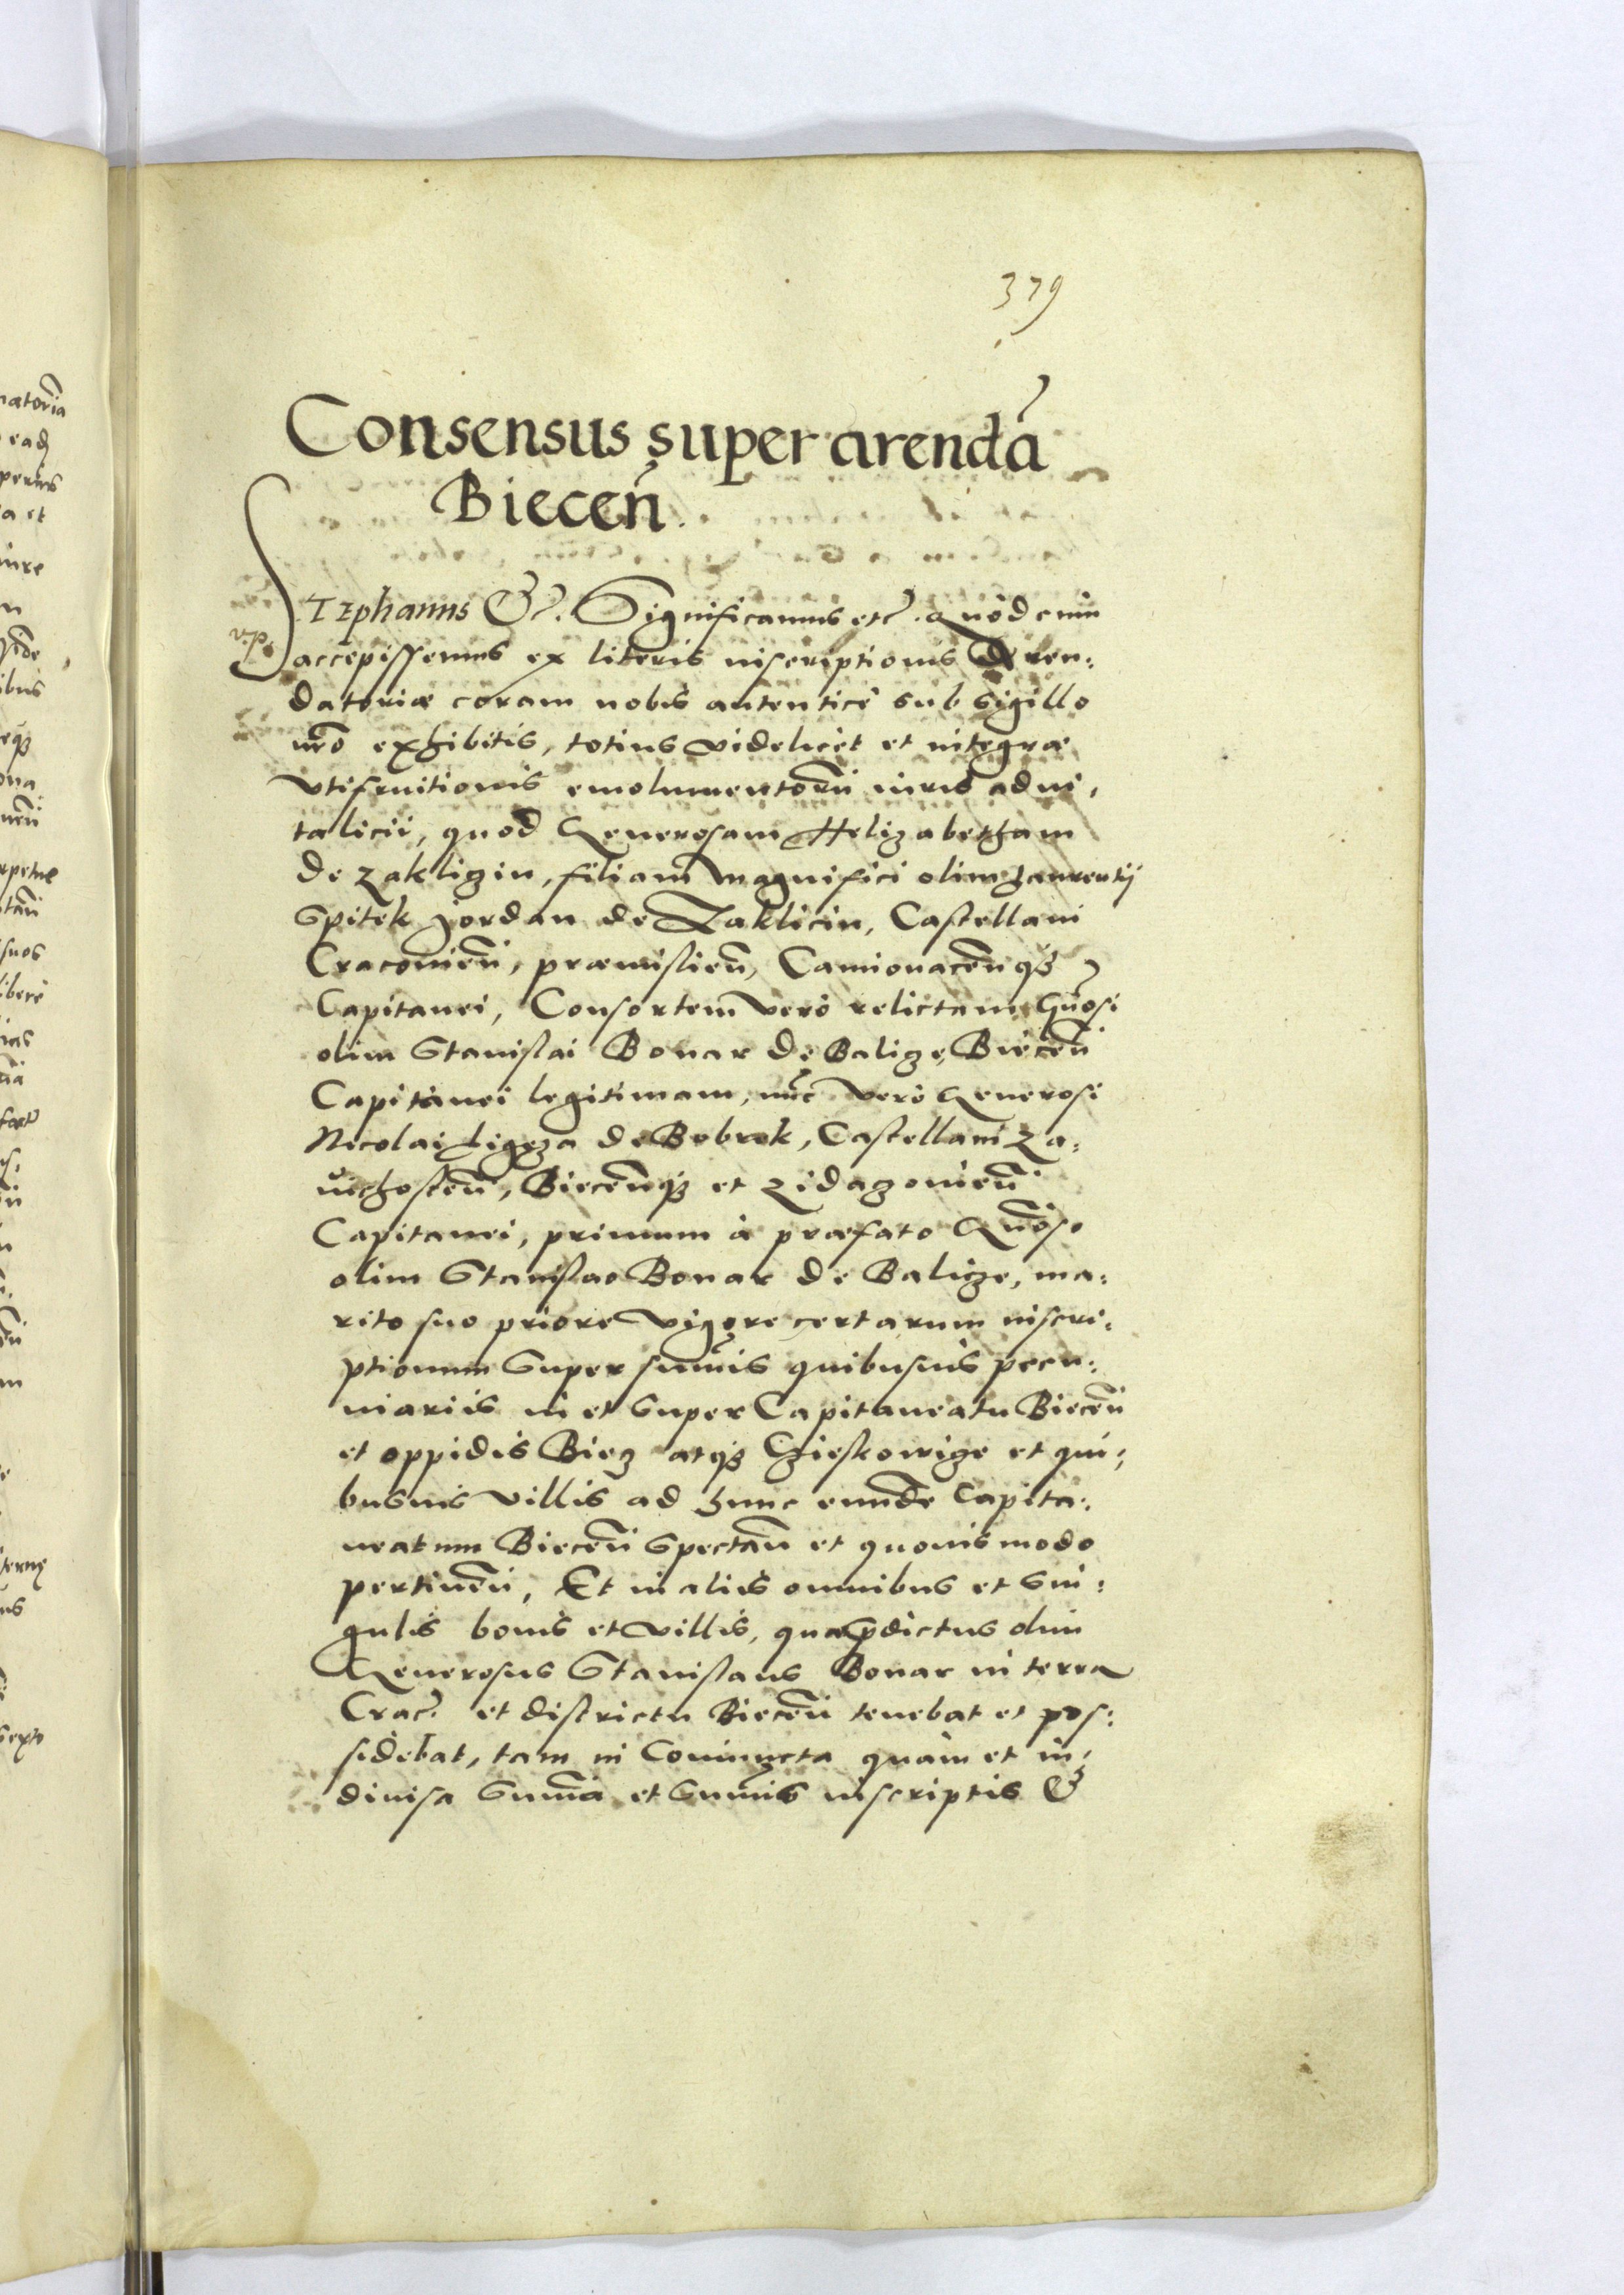 379
Consensus super arendā
Biecen̄.
STEphanus &c. Significamus etc. Quòd cum
v.p. accepissemus ex literis inscriptionis Aren:
datoriæ coram nobis autenticè sub sigillo
nr̄o exhibitis, totius videlicet et integræ
vtifruitionis emolumentorū iuris advi:
talicii, quod Generosam Helizabetham
de Zakligin, filiam Magnifici olim Laurentij
Spitek Jordan de Zaklicin, Castellani
Cracovien̄, præmislien̄, Camionacen̄qȝ
Capitanei, Consortem verò relictam Gn̄osi
olim Stanislai Bonar de Balize, Biecen̄
Capitanei legitimam, nūc verò Generosi
Nicolai Ligęza de Bobrek, Castellani Za:
vichosten̄, Biecen̄qȝ et Zidazowien̄
Capitanei, primum à præfato Gn̄oso
olim Stanislao Bonar de Balize, ma:
rito suo priore vigore certarum inscri:
ptionum super sum̄is quibusvis pecu:
niariis in et super Capitaneatu Biecen̄
et oppidis Biez atqȝ Czieskowize et qui:
busvis villis ad hunc eundē Capita:
neatum Biecen̄ spectan̄ et quovismodo
pertinen̄, Et in aliis omnibus et sin:
gulis bonis et villis, quæ p̄dictus olim
Generosus Stanislaus Bonar in terra
Crac. et districtu Biecen̄ tenebat et pos:
sidebat, tam in Coniuncta quàm et in:
divisa sum̄a et sum̄is inscriptis &